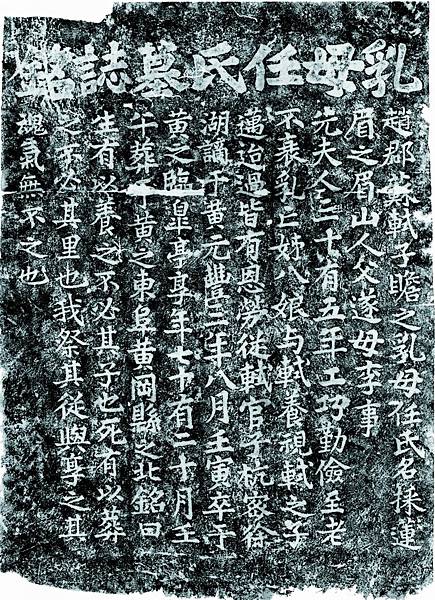 乳母任氏墓誌銘
趙郡蘇軾子瞻之乳母任氏名採蓮
眉之眉山人父遂母李事
先夫人三十有五年工巧勤儉至老
不衰乳亡姊八娘与軾養視軾之子
邁迨過皆有恩勞從軾官于杭密徐
湖謫于黄元豐三年八月壬寅卒于
黄之臨皋亭享年七十有二十月壬
午葬于黄之東阜黄岡縣之北銘曰
生有以養之不必其子也死有以葬
之不必其里也我祭其從與享之其
魂氣無不之也